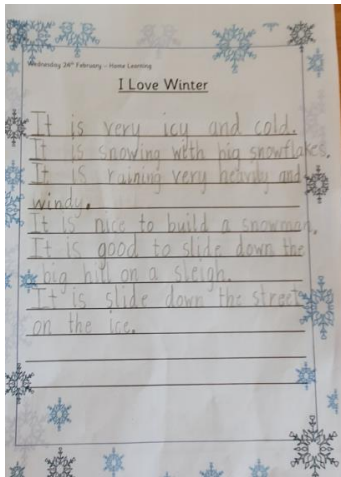 Wednesday 24th February – Home Learning
I Love Winter
It is very icy and cold.
It is snowing with big snowflakes.
It is raining very heavily and
windy.
It is nice to build a snowman.
It is good to slide down the
big hill on a sleigh.
It is slide down the street
on the ice.